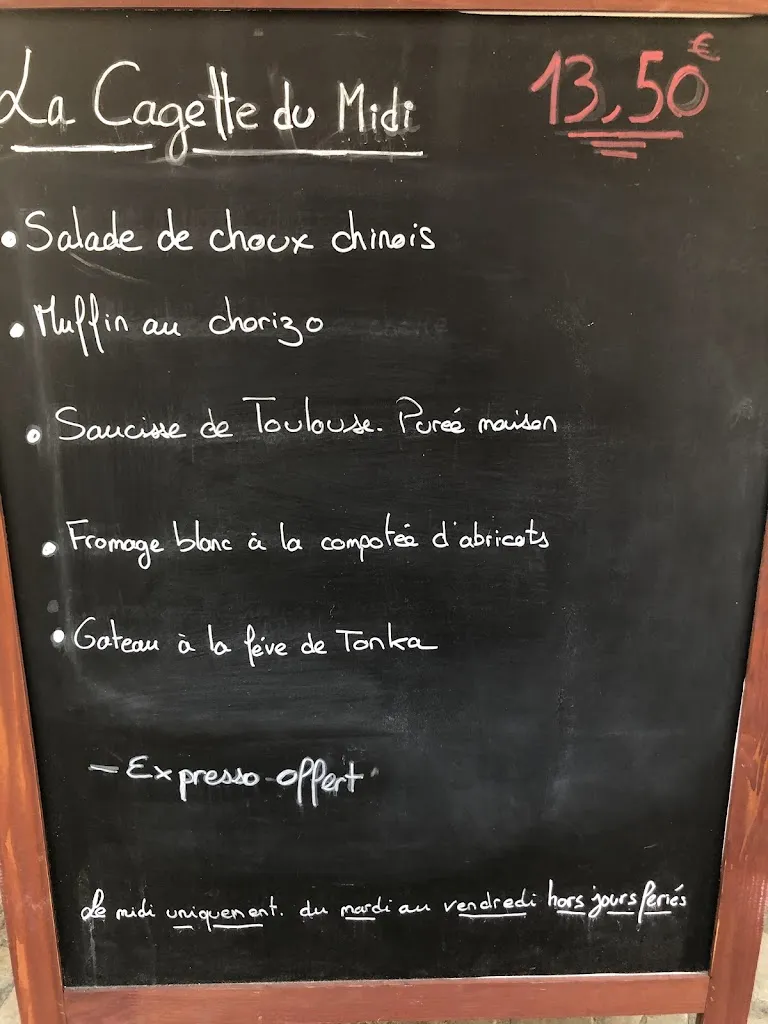 La Cagette du Midi 13,50€
• Salade de choux chinois
• Muffin au chorizo
• Saucisse de Toulouse. Pureé maison
• Fromage blanc à la compoteé d'abricots
• Gateau à la féve de Tonka
- Expresso offert
Le midi uniquement. du mardi au vendredi hors jours fériés